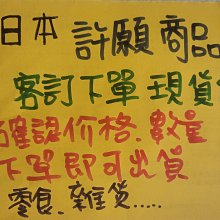 日本 許願商品
客訂下單 現貨
確認价格.數量
下單即可出貨
零食.雜貨.....